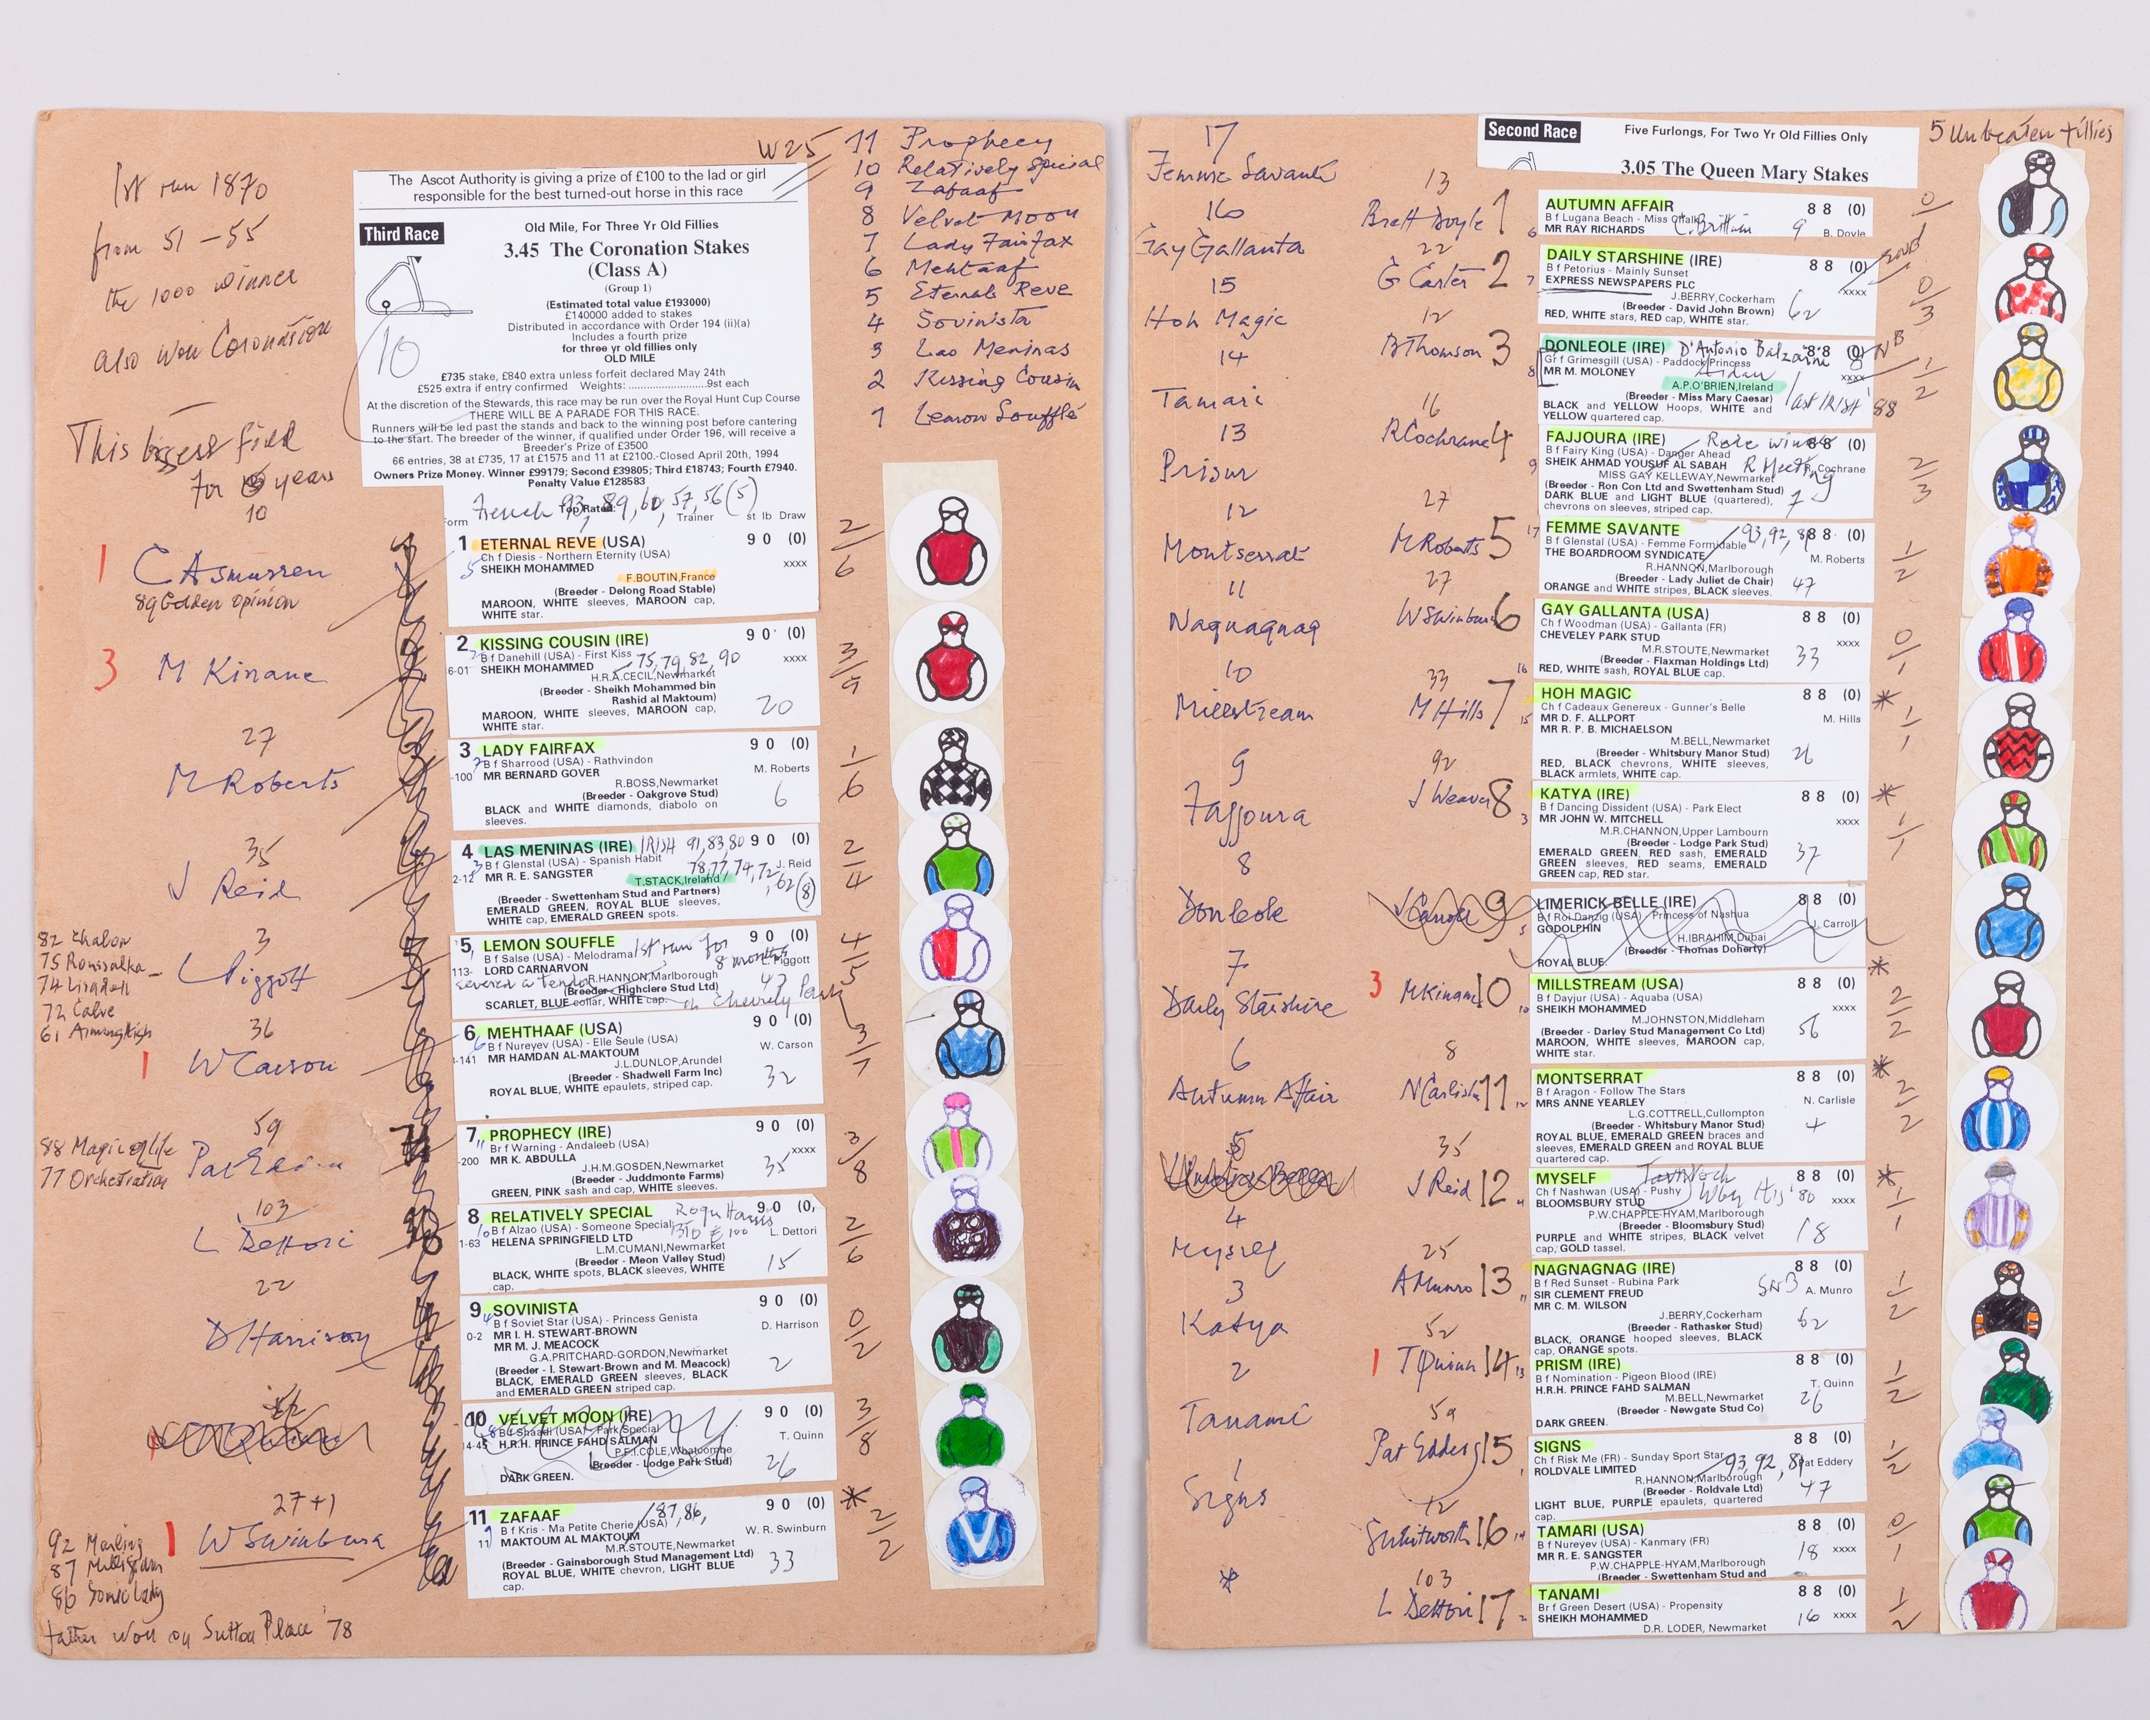 1st run 1870
from 51 - 55
the 1000 winner
also won Coronation
This biggest field
for years
10
1 C Asmussen
89 Golden Opinion
3 M Kinane
27
M Roberts
35
J Reid
3
L Piggott
82 Chalon
75 Roussalka
74 Lisadell
72 Calve
36
1 W Carson
59
Pat Eddery
88 Magic of Life
77 Orchestration
103
L Dettori
22
D Harrison
27+1
1 W Swinburn
92 Marling
87 Milligram
86 Sonic Lady
father won on Sutton Place '78
W25
The Ascot Authority is giving a prize of £100 to the lad or girl
responsible for the best turned-out horse in this race
Third Race
Old Mile, For Three Yr Old Fillies
3.45 The Coronation Stakes
(Class A)
(Group 1)
10
(Estimated total value £193000)
£140000 added to stakes
Distributed in accordance with Order 194 (ii)(a)
Includes a fourth prize
for three yr old fillies only
OLD MILE
£735 stake, £840 extra unless forfeit declared May 24th
£525 extra if entry confirmed Weights: ............................9st each
At the discretion of the Stewards, this race may be run over the Royal Hunt Cup Course
THERE WILL BE A PARADE FOR THIS RACE.
Runners will be led past the stands and back to the winning post before cantering
to the start. The breeder of the winner, if qualified under Order 196, will receive a
Breeder's Prize of £3500
66 entries, 38 at £735, 17 at £1575 and 11 at £2100.-Closed April 20th, 1994
Owners Prize Money. Winner £99179; Second £39805; Third £18743; Fourth £7940.
Penalty Value £128583
French 93, 89, 60, 57, 56 (5)
Top Rated:
Form Trainer st lb Draw
1 ETERNAL REVE (USA) 9 0 (0)
Ch f Diesis - Northern Eternity (USA)
5 SHEIKH MOHAMMED xxxx
F.BOUTIN,France
(Breeder - Delong Road Stable)
MAROON, WHITE sleeves, MAROON cap,
WHITE star.
2/6
2 KISSING COUSIN (IRE) 9 0 (0)
B f Danehill (USA) - First Kiss
6-01 SHEIKH MOHAMMED 75, 79, 82, 90 xxxx
H.R.A.CECIL,Newmarket
(Breeder - Sheikh Mohammed bin
Rashid al Maktoum)
MAROON, WHITE sleeves, MAROON cap, 20
WHITE star.
3/9
3 LADY FAIRFAX 9 0 (0)
7 B f Sharrood (USA) - Rathvindon
-100 MR BERNARD GOVER M. Roberts
R.BOSS,Newmarket
(Breeder - Oakgrove Stud) 6
BLACK and WHITE diamonds, diabolo on
sleeves.
1/6
4 LAS MENINAS (IRE) IRISH 91,83,80 9 0 (0)
3 B f Glenstal (USA) - Spanish Habit 78,77,74,72, J. Reid
2-12 MR R. E. SANGSTER 62 (8)
T.STACK,Ireland
(Breeder - Swettenham Stud and Partners)
EMERALD GREEN, ROYAL BLUE sleeves,
WHITE cap, EMERALD GREEN spots.
2/4
5 LEMON SOUFFLE 1st run for 9 0 (0)
B f Salse (USA) - Melodrama 8 months L. Piggott
113- LORD CARNARVON
R.HANNON,Marlborough 47
severed a tendon
(Breeder - Highclere Stud Ltd) in Chevely Park
SCARLET, BLUE collar, WHITE cap.
4/5
6 MEHTHAAF (USA) 9 0 (0)
6 B f Nureyev (USA) - Elle Seule (USA)
1-141 MR HAMDAN AL-MAKTOUM W. Carson
J.L.DUNLOP,Arundel
(Breeder - Shadwell Farm Inc) 32
ROYAL BLUE, WHITE epaulets, striped cap.
3/7
7 PROPHECY (IRE) 9 0 (0)
11 Br f Warning - Andaleeb (USA)
-200 MR K. ABDULLA xxxx
J.H.M.GOSDEN,Newmarket 35
(Breeder - Juddmonte Farms)
GREEN, PINK sash and cap, WHITE sleeves.
3/8
8 RELATIVELY SPECIAL 9 0 (0)
10 B f Alzao (USA) - Someone Special
1-63 HELENA SPRINGFIELD LTD L. Dettori
L.M.CUMANI,Newmarket
(Breeder - Meon Valley Stud) 15
BLACK, WHITE spots, BLACK sleeves, WHITE
cap.
2/6
9 SOVINISTA 9 0 (0)
4 B f Soviet Star (USA) - Princess Genista
0-2 MR I. H. STEWART-BROWN D. Harrison
MR M. J. MEACOCK
G.A.PRITCHARD-GORDON,Newmarket
(Breeder - I. Stewart-Brown and M. Meacock) 2
BLACK, EMERALD GREEN sleeves, BLACK
and EMERALD GREEN striped cap.
0/2
10 VELVET MOON (IRE) 9 0 (0)
8 B f Shaadi (USA) - Park Special
14-45 H.R.H. PRINCE FAHD SALMAN T. Quinn
P.F.I.COLE,Whatcombe
(Breeder - Lodge Park Stud) 26
DARK GREEN.
3/8
11 ZAFAAF 87,86, 9 0 (0) *
9 B f Kris - Ma Petite Cherie (USA)
11 MAKTOUM AL MAKTOUM W. R. Swinburn
M.R.STOUTE,Newmarket
(Breeder - Gainsborough Stud Management Ltd) 33
ROYAL BLUE, WHITE chevron, LIGHT BLUE
cap.
2/2
11 Prophecy
10 Relatively Special
9 Zafaaf
8 Velvet Moon
7 Lady Fairfax
6 Mehtaaf
5 Eternal Reve
4 Sovinista
3 Las Meninas
2 Kissing Cousin
1 Lemon Soufflé
17
Femme Savante
16
Gay Gallanta
15
Hoh Magic
14
Tamari
13
Prism
12
Montserrat
11
Nagnagnag
10
Millstream
9
Fajjoura
8
Donleole
7
Daily Starshine
6
Autumn Affair
5
4
Myself
3
Katya
2
Tanami
1
Signs
*
Second Race
Five Furlongs, For Two Yr Old Fillies Only
3.05 The Queen Mary Stakes
5 Unbeaten fillies
13
Brett Doyle 1
AUTUMN AFFAIR 8 8 (0)
B f Lugana Beach - Miss Chalk C. Brittain
6 MR RAY RICHARDS 9 B. Doyle
0/
22
G Carter 2
DAILY STARSHINE (IRE) 8 8 (0)
B f Petorius - Mainly Sunset
7 EXPRESS NEWSPAPERS PLC xxxx
J.BERRY,Cockerham
(Breeder - David John Brown) 62
RED, WHITE stars, RED cap, WHITE star.
0/3
12
B Thomson 3
DONLEOLE (IRE) 8 8 (0) NB
Gr f Grimesgill (USA) - Paddock Princess
8 MR M. MOLONEY Aidan xxxx
A.P.O'BRIEN,Ireland
(Breeder - Miss Mary Caesar) last IRISH 88
BLACK and YELLOW Hoops, WHITE and
YELLOW quartered cap.
1/2
16
R Cochrane 4
FAJJOURA (IRE) 8 8 (0)
B f Fairy King (USA) - Danger Ahead
9 SHEIK AHMAD YOUSUF AL SABAH R. Cochrane
MISS GAY KELLEWAY,Newmarket
(Breeder - Ron Con Ltd and Swettenham Stud) 7
DARK BLUE and LIGHT BLUE (quartered),
chevrons on sleeves, striped cap.
2/3
27
M Roberts 5
17 FEMME SAVANTE 93, 92, 8 8 (0)
B f Glenstal (USA) - Femme Formidable
THE BOARDROOM SYNDICATE M. Roberts
R.HANNON,Marlborough
(Breeder - Lady Juliet de Chair) 47
ORANGE and WHITE stripes, BLACK sleeves.
1/2
27
W Swinburn 6
GAY GALLANTA (USA) 8 8 (0)
Ch f Woodman (USA) - Gallanta (FR)
CHEVELEY PARK STUD xxxx
M.R.STOUTE,Newmarket
(Breeder - Flaxman Holdings Ltd) 33
16 RED, WHITE sash, ROYAL BLUE cap.
0/1
33
M Hills 7
HOH MAGIC 8 8 (0) *
Ch f Cadeaux Genereux - Gunner's Belle
15 MR D. F. ALLPORT M. Hills
MR R. P. B. MICHAELSON
M.BELL,Newmarket
(Breeder - Whitsbury Manor Stud) 26
RED, BLACK chevrons, WHITE sleeves,
BLACK armlets, WHITE cap.
1/1
92
J Weaver 8
KATYA (IRE) 8 8 (0) *
B f Dancing Dissident (USA) - Park Elect
3 MR JOHN W. MITCHELL xxxx
M.R.CHANNON,Upper Lambourn
(Breeder - Lodge Park Stud) 37
EMERALD GREEN, RED sash, EMERALD
GREEN sleeves, RED seams, EMERALD
GREEN cap, RED star.
1/1
J Carroll 9
LIMERICK BELLE (IRE) 8 8 (0)
B f Roi Danzig (USA) - Princess of Nashua
5 GODOLPHIN J. Carroll
H.IBRAHIM,Dubai
(Breeder - Thomas Doherty)
ROYAL BLUE.
3 M Kinane 10
MILLSTREAM (USA) 8 8 (0) *
B f Dayjur (USA) - Aquaba (USA)
10 SHEIKH MOHAMMED xxxx
M.JOHNSTON,Middleham
(Breeder - Darley Stud Management Co Ltd) 56
MAROON, WHITE sleeves, MAROON cap,
WHITE star.
2/2
8
N Carlisle 11
MONTSERRAT 8 8 (0) *
B f Aragon - Follow The Stars
12 MRS ANNE YEARLEY N. Carlisle
L.G.COTTRELL,Cullompton
(Breeder - Whitsbury Manor Stud) 4
ROYAL BLUE, EMERALD GREEN braces and
sleeves, EMERALD GREEN and ROYAL BLUE
quartered cap.
2/2
35
J Reid 12
MYSELF 8 8 (0) *
Ch f Nashwan (USA) - Pushy
BLOOMSBURY STUD xxxx
P.W.CHAPPLE-HYAM,Marlborough
(Breeder - Bloomsbury Stud) 18
PURPLE and WHITE stripes, BLACK velvet
cap, GOLD tassel.
1/1
25
A Munro 13
NAGNAGNAG (IRE) 8 8 (0)
B f Red Sunset - Rubina Park
11 SIR CLEMENT FREUD A. Munro
MR C. M. WILSON
J.BERRY,Cockerham
(Breeder - Rathasker Stud) 62
BLACK, ORANGE hooped sleeves, BLACK
cap, ORANGE spots.
1/2
52
1 T Quinn 14
PRISM (IRE) 8 8 (0)
B f Nomination - Pigeon Blood (IRE)
13 H.R.H. PRINCE FAHD SALMAN T. Quinn
M.BELL,Newmarket
(Breeder - Newgate Stud Co) 26
DARK GREEN.
1/2
59
Pat Eddery 15
SIGNS 8 8 (0)
Ch f Risk Me (FR) - Sunday Sport Star
1 ROLDVALE LIMITED 93, 92, 89 Pat Eddery
R.HANNON,Marlborough
(Breeder - Roldvale Ltd) 47
LIGHT BLUE, PURPLE epaulets, quartered
cap.
1/2
12
S Whitworth 16
TAMARI (USA) 8 8 (0)
B f Nureyev (USA) - Kanmary (FR)
14 MR R. E. SANGSTER 18 xxxx
P.W.CHAPPLE-HYAM,Marlborough
(Breeder - Swettenham Stud and
0/1
103
L Dettori 17
TANAMI 8 8 (0)
Br f Green Desert (USA) - Propensity
2 SHEIKH MOHAMMED 16 xxxx
D.R. LODER, Newmarket
1/2